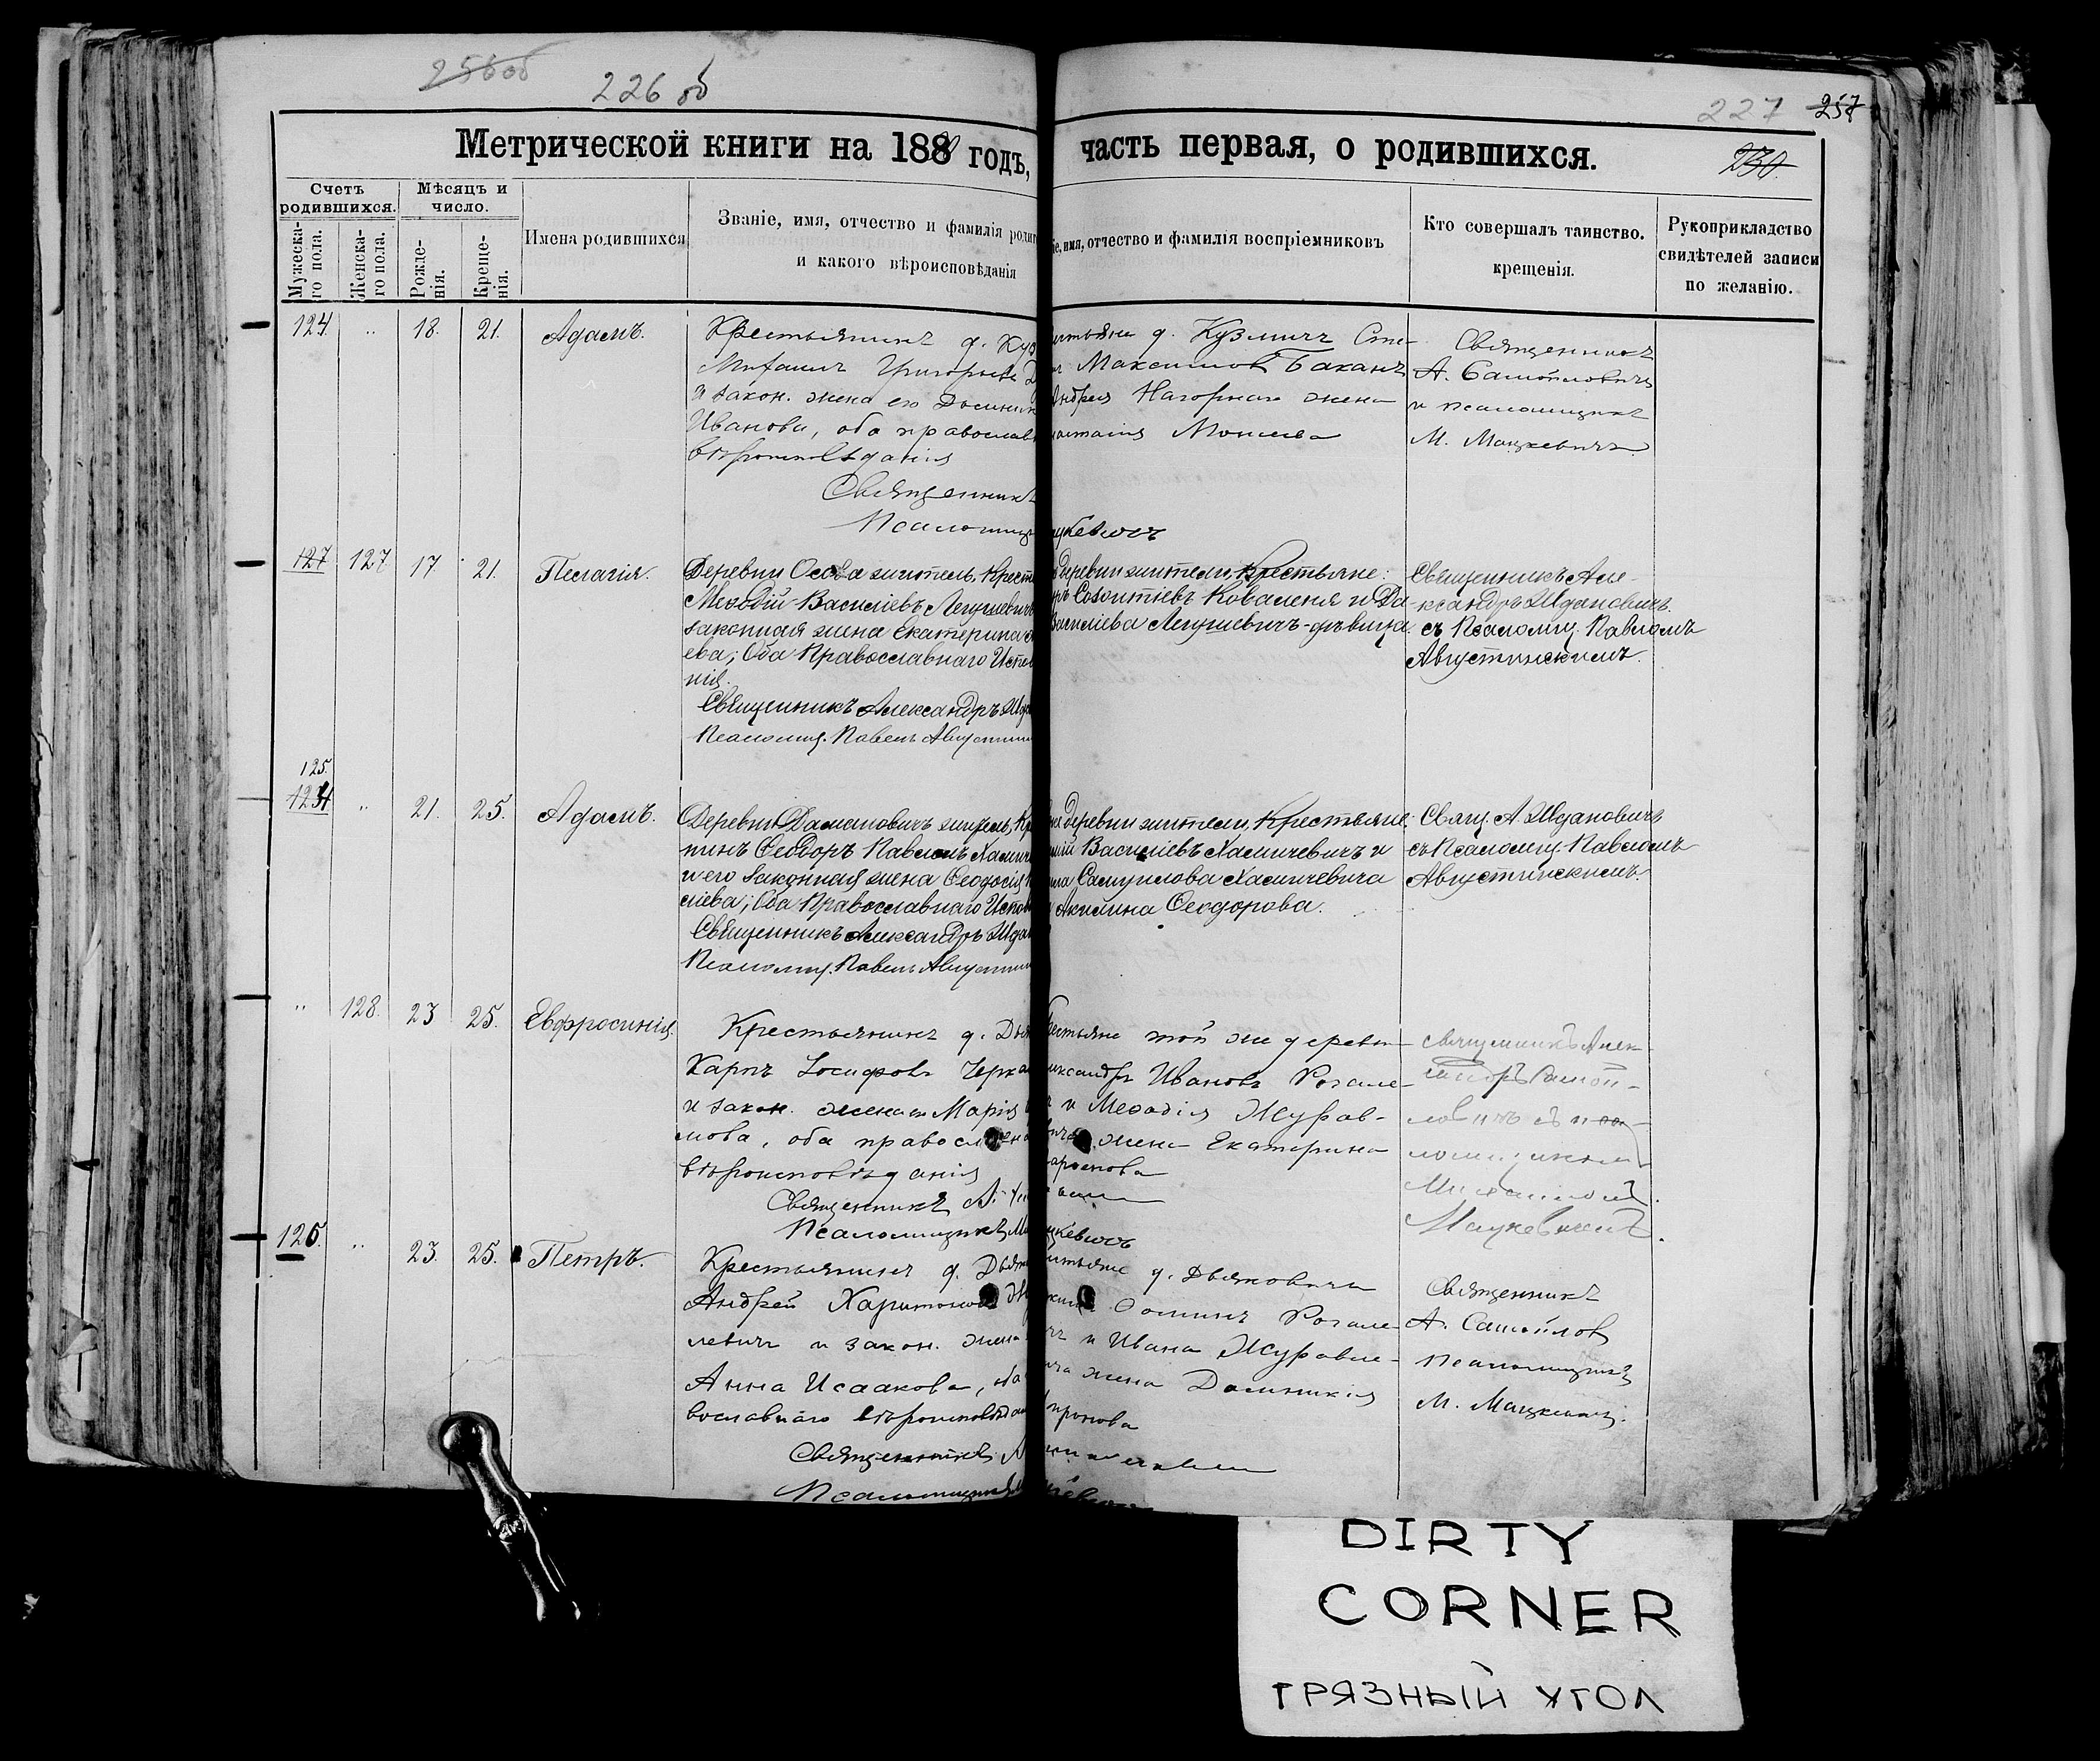 256об
226 об
227 257
230.
Метрической книги на 1880 годъ, часть первая, о родившихся.
Счетъ родившихся.
Мѣсяцъ и число.
Мужеска-го пола.
Женска-го пола.
Рожде-нія.
Креще-нія.
Имена родившихся
Званіе, имя, отчество и фамилія роди
и какого вѣроисповѣданія
е, имя, отчество и фамилія воспріемниковъ
Кто совершалъ таинство.
крещенія.
Рукоприкладство
свидѣтелей записи
по желанію.
124 " 18. 21. Адамъ.
Крестьянинъ д. Куз
Михаилъ Григорьевъ
и закон. жена его Домники
Иванова, оба православ
вѣроисповѣданія
Священникъ
Псаломщ
стьяне д. Кузмичъ Сте-
Максимовъ Баканъ
Андрея Нагорнаго жена
настасія Моисеева
цкевичъ
Священникъ
А. Самойловичъ
и псаломщикъ
М. Мацкевичъ
127 127 17 21. Пелагія.
Деревни Осова житель, Крест
Меѳодій Василіевъ Легушевичъ
законная жена Екатерина
ева; Оба Православнаго Испов
нія.
Священникъ Александръ Жда
Псаломщ. Павелъ Августин
деревни жители, крестьяне:
Созонтіевъ Коваленя и Да
Василіева Легушевичъ-дѣвица.
Священникъ Але-
ксандръ Ждановичъ.
съ Псаломщ. Павломъ
Августинскимъ.
125.
124 " 21. 25. Адамъ.
Деревни Дамановичъ житель, Кр
нинъ Ѳеодоръ Павловъ Хамич
и его законная жена Ѳеодосія
сіева; Оба Православнаго Испов
Священникъ Александръ Жда
Псаломщ. Павелъ Августин
деревни жители, Крестьяне:
Василіевъ Хамичевичъ и
Самуилова Хамичевича
Акилина Ѳеодорова.
Свящ. А Ждановичъ
съ Псаломщ. Павломъ
Августинскимъ.
" 128. 23 25. Евфросинія
Крестьянинъ д. Дья
Карпъ Іосифовъ Черка
и закон. жена Марія
мова, оба православно
вѣроисповѣданія
Священникъ А.
Псаломщикъ М
Крестьяне той же деревни
лександръ Ивановъ Рогале-
и Меѳодія Журав-
жена Екатерина
цкевичъ
священникъ Алек-
сандръ Самой-
ловичъ съ пса-
ломщикомъ
Михаиломъ
Мацкевичемъ.
126. " 23. 25. Петръ.
Крестьянинъ д. Дьяк
Андрей Харитоновъ Жу
левичъ и закон. жена
Анна Исаакова, оба
вославнаго вѣроисповѣдан
Священникъ А
Псаломщикъ М
стьяне д. Дьяковичи
Ѳоминъ Рогале-
и Ивана Журавле-
жена Домникія
Священникъ
А. Самойлов
Псаломщикъ
М. Мацкевичъ.
DIRTY
CORNER
ГРЯЗНЫЙ УГОЛ